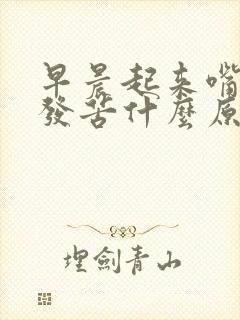 早晨起来嘴
發苦什麼原
埋劍青山